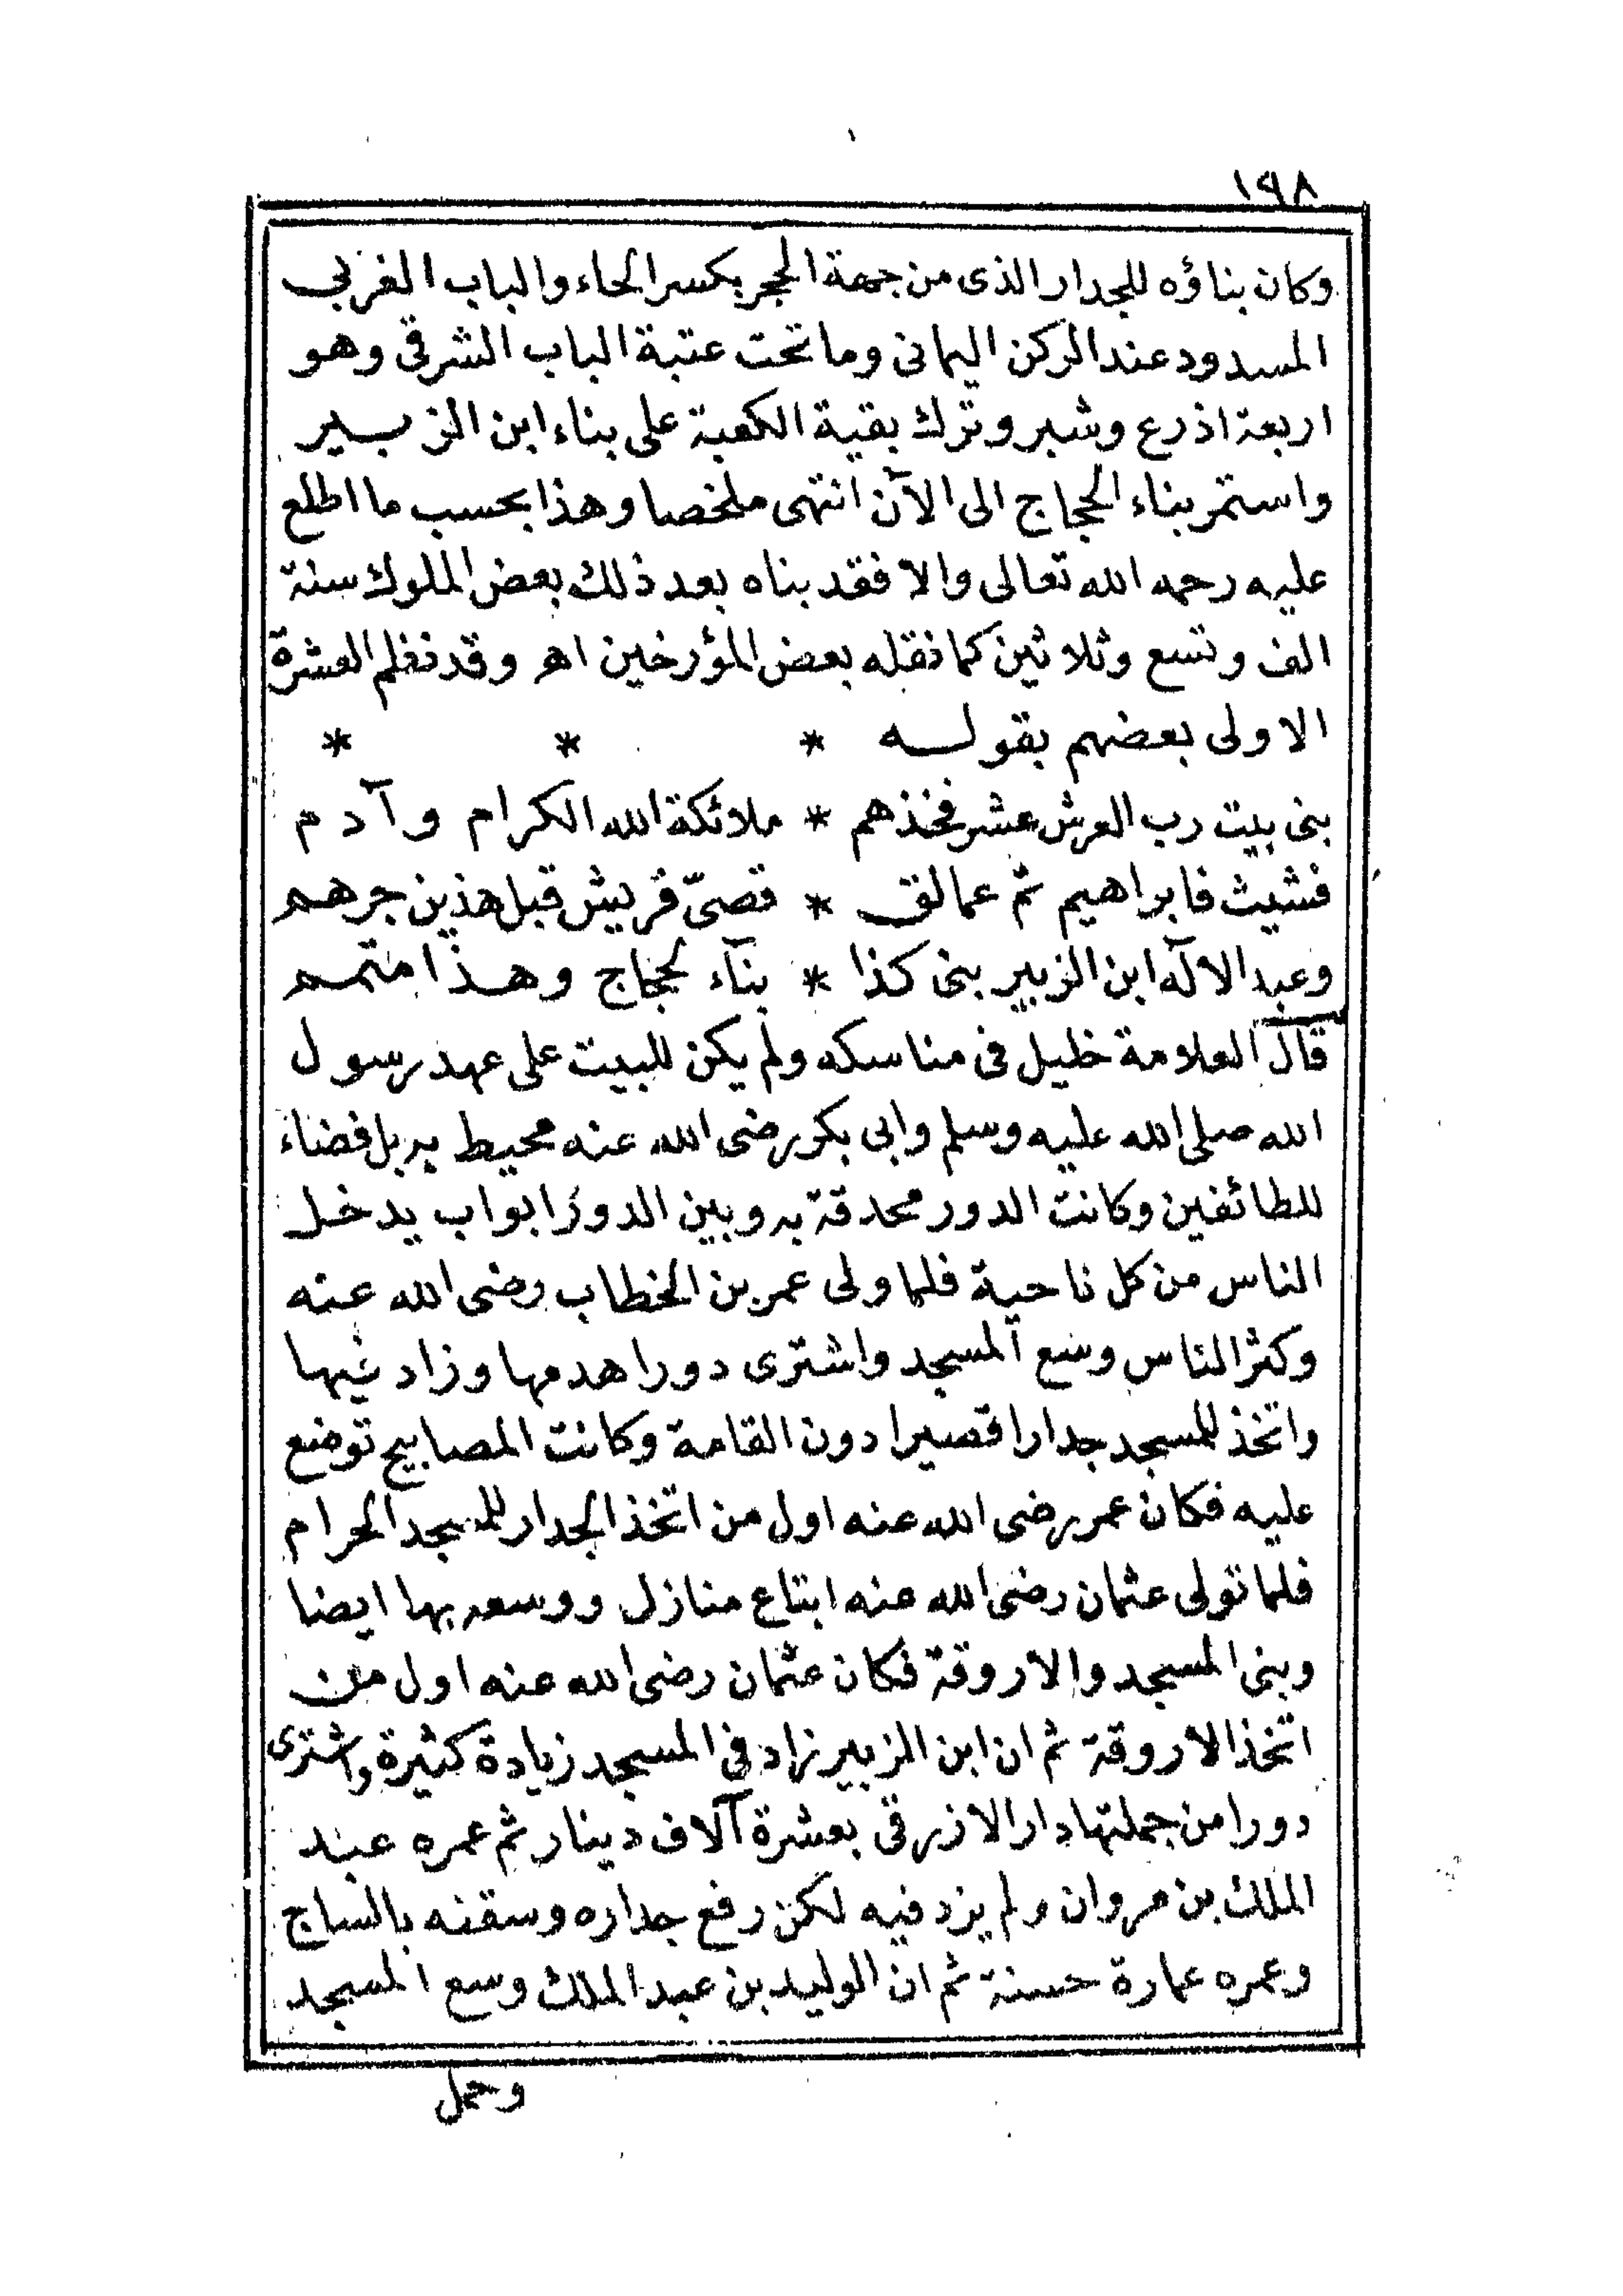 ١٩٨
وكان بناؤه للجدار الذى من جهة الحجر بكسر الحاء والباب الغربى
المسدود عند الركن اليمانى وما تحت عتبة الباب الشرقى وهو
اربعة اذرع وشبر وترك بقية الكعبة على بناء ابن الزبير
واستمر بناء الحجاج الى الآن انتهى ملخصا وهذا بحسب ما اطلع
عليه رحمه الله تعالى والا فقد بناه بعد ذلك بعض الملوك سنة
الف وتسع وثلاثين كما نقله بعض المؤرخين اهـ وقد نظم العشرة
الاولى بعضهم بقوله * * *
بنى بيت رب العرش عشر فخذهم * ملائكة الله الكرام وآدم
فشيث فابراهيم ثم عمالق * قصىّ قريش قبل هذين جرهم
وعبد الآله ابن الزبير بنى كذا * بنآء لحجاج وهذا متمم
قال العلامة خليل فى مناسكه ولم يكن للبيت على عهد رسول
الله صلى الله عليه وسلم وابى بكر رضى الله عنه محيط به بل فضاء
للطائفين وكانت الدور محدقة به وبين الدور ابواب يدخل
الناس من كل ناحية فلما ولى عمر بن الخطاب رضى الله عنه
وكثر الناس وسع المسجد واشترى دورا هدمها وزاد فيها
واتخذ للمسجد جدارا قصيرا دون القامة وكانت المصابيح توضع
عليه فكان عمر رضى الله عنه اول من اتخذ الجدار للمسجد الحرام
فلما تولى عثمان رضى الله عنه ابتاع منازل ووسعه بها ايضا
وبنى المسجد والاروقة فكان عثمان رضى الله عنه اول من
اتخذ الاروقة ثم ان ابن الزبير زاد فى المسجد زيادة كثيرة واشترى
دورا من جملتها دار الازرقى بعشرة آلاف دينار ثم عمره عبد
الملك بن مروان ولم يزد فيه لكن رفع جداره وسقفه بالساج
وعمره عمارة حسنة ثم ان الوليد بن عبد الملك وسع المسجد
وحمل